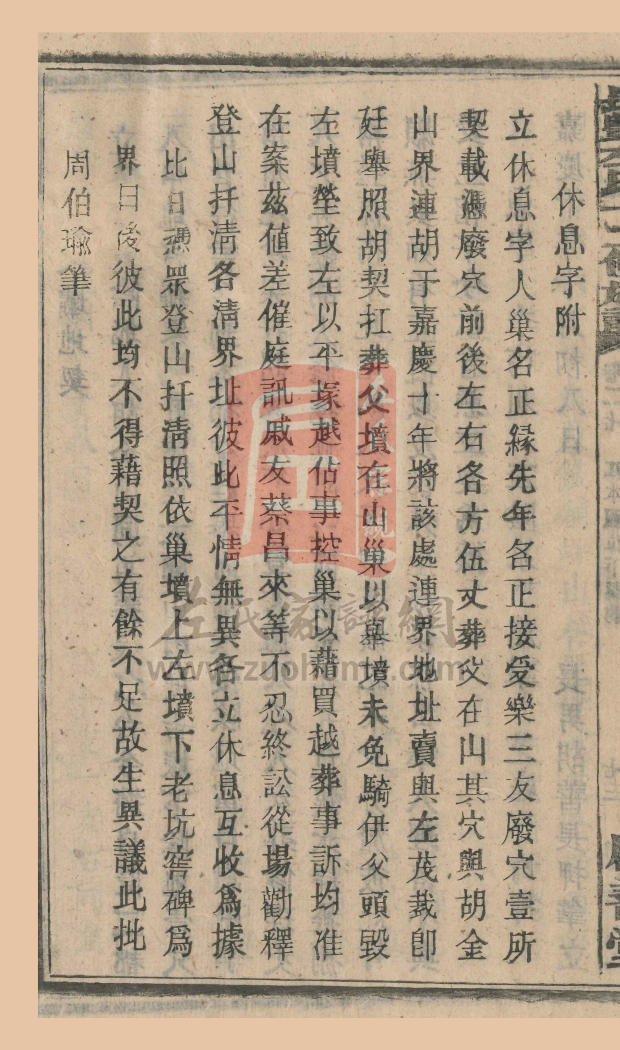 休息字附
立休息字人巢名正緣先年名正接受樂三友廢穴壹所
契載憑廢穴前後左右各方伍丈葬父在山其穴與胡金
山界連胡于嘉慶十年將該處連界地址賣與左茂裁卽
廷舉照胡契扛葬父墳在山巢以舉墳未免騎伊父頭毀
左墳塋致左以平塚越佔事控巢以藉買越葬事訴均准
在案茲値差催庭訊戚友蔡昌來等不忍終訟從場勸釋
登山扦淸各淸界址彼此平情無異各立休息互收爲據
比日憑眾登山扦淸照依巢墳上左墳下老坑窖碑爲
界日後彼此均不得藉契之有餘不足故生異議此批
周伯瑜筆
左氏家譜網
www.zuojiapu.com